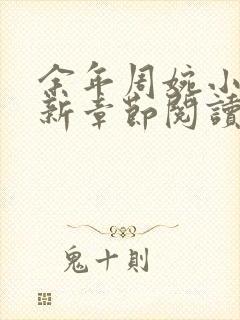 余年周婉小
新章节閱讀
鬼十則